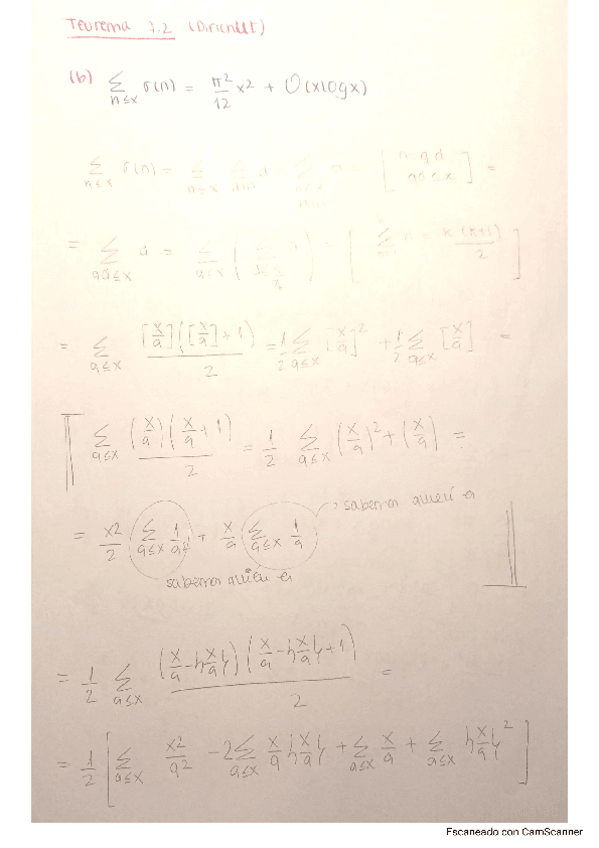 Teorema 1.2 (Dirichlet)
(b) ∑_{n≤x} σ(n) = π²/12 x² + O(x log x)
∑_{n≤x} σ(n) =
= ∑_{qd≤x} d =
= ∑_{q≤x} [x/q]([x/q]+1)/2 = 1/2 ∑_{q≤x} [x/q]² + 1/2 ∑_{q≤x} [x/q] =
∑_{q≤x} (x/q)(x/q + 1)/2 = 1/2 ∑_{q≤x} (x/q)² + (x/q) =
= x²/2 ∑_{q≤x} 1/q² + x/q ∑_{q≤x} 1/q → sabemos quién es
sabemos quién es
= 1/2 ∑_{q≤x} (x/q - {x/q})(x/q - {x/q} + 1)/2 =
= 1/2 [∑_{q≤x} x²/q² - 2∑_{q≤x} x/q {x/q} + ∑_{q≤x} x/q + ∑_{q≤x} {x/q}²]
Escaneado con CamScanner